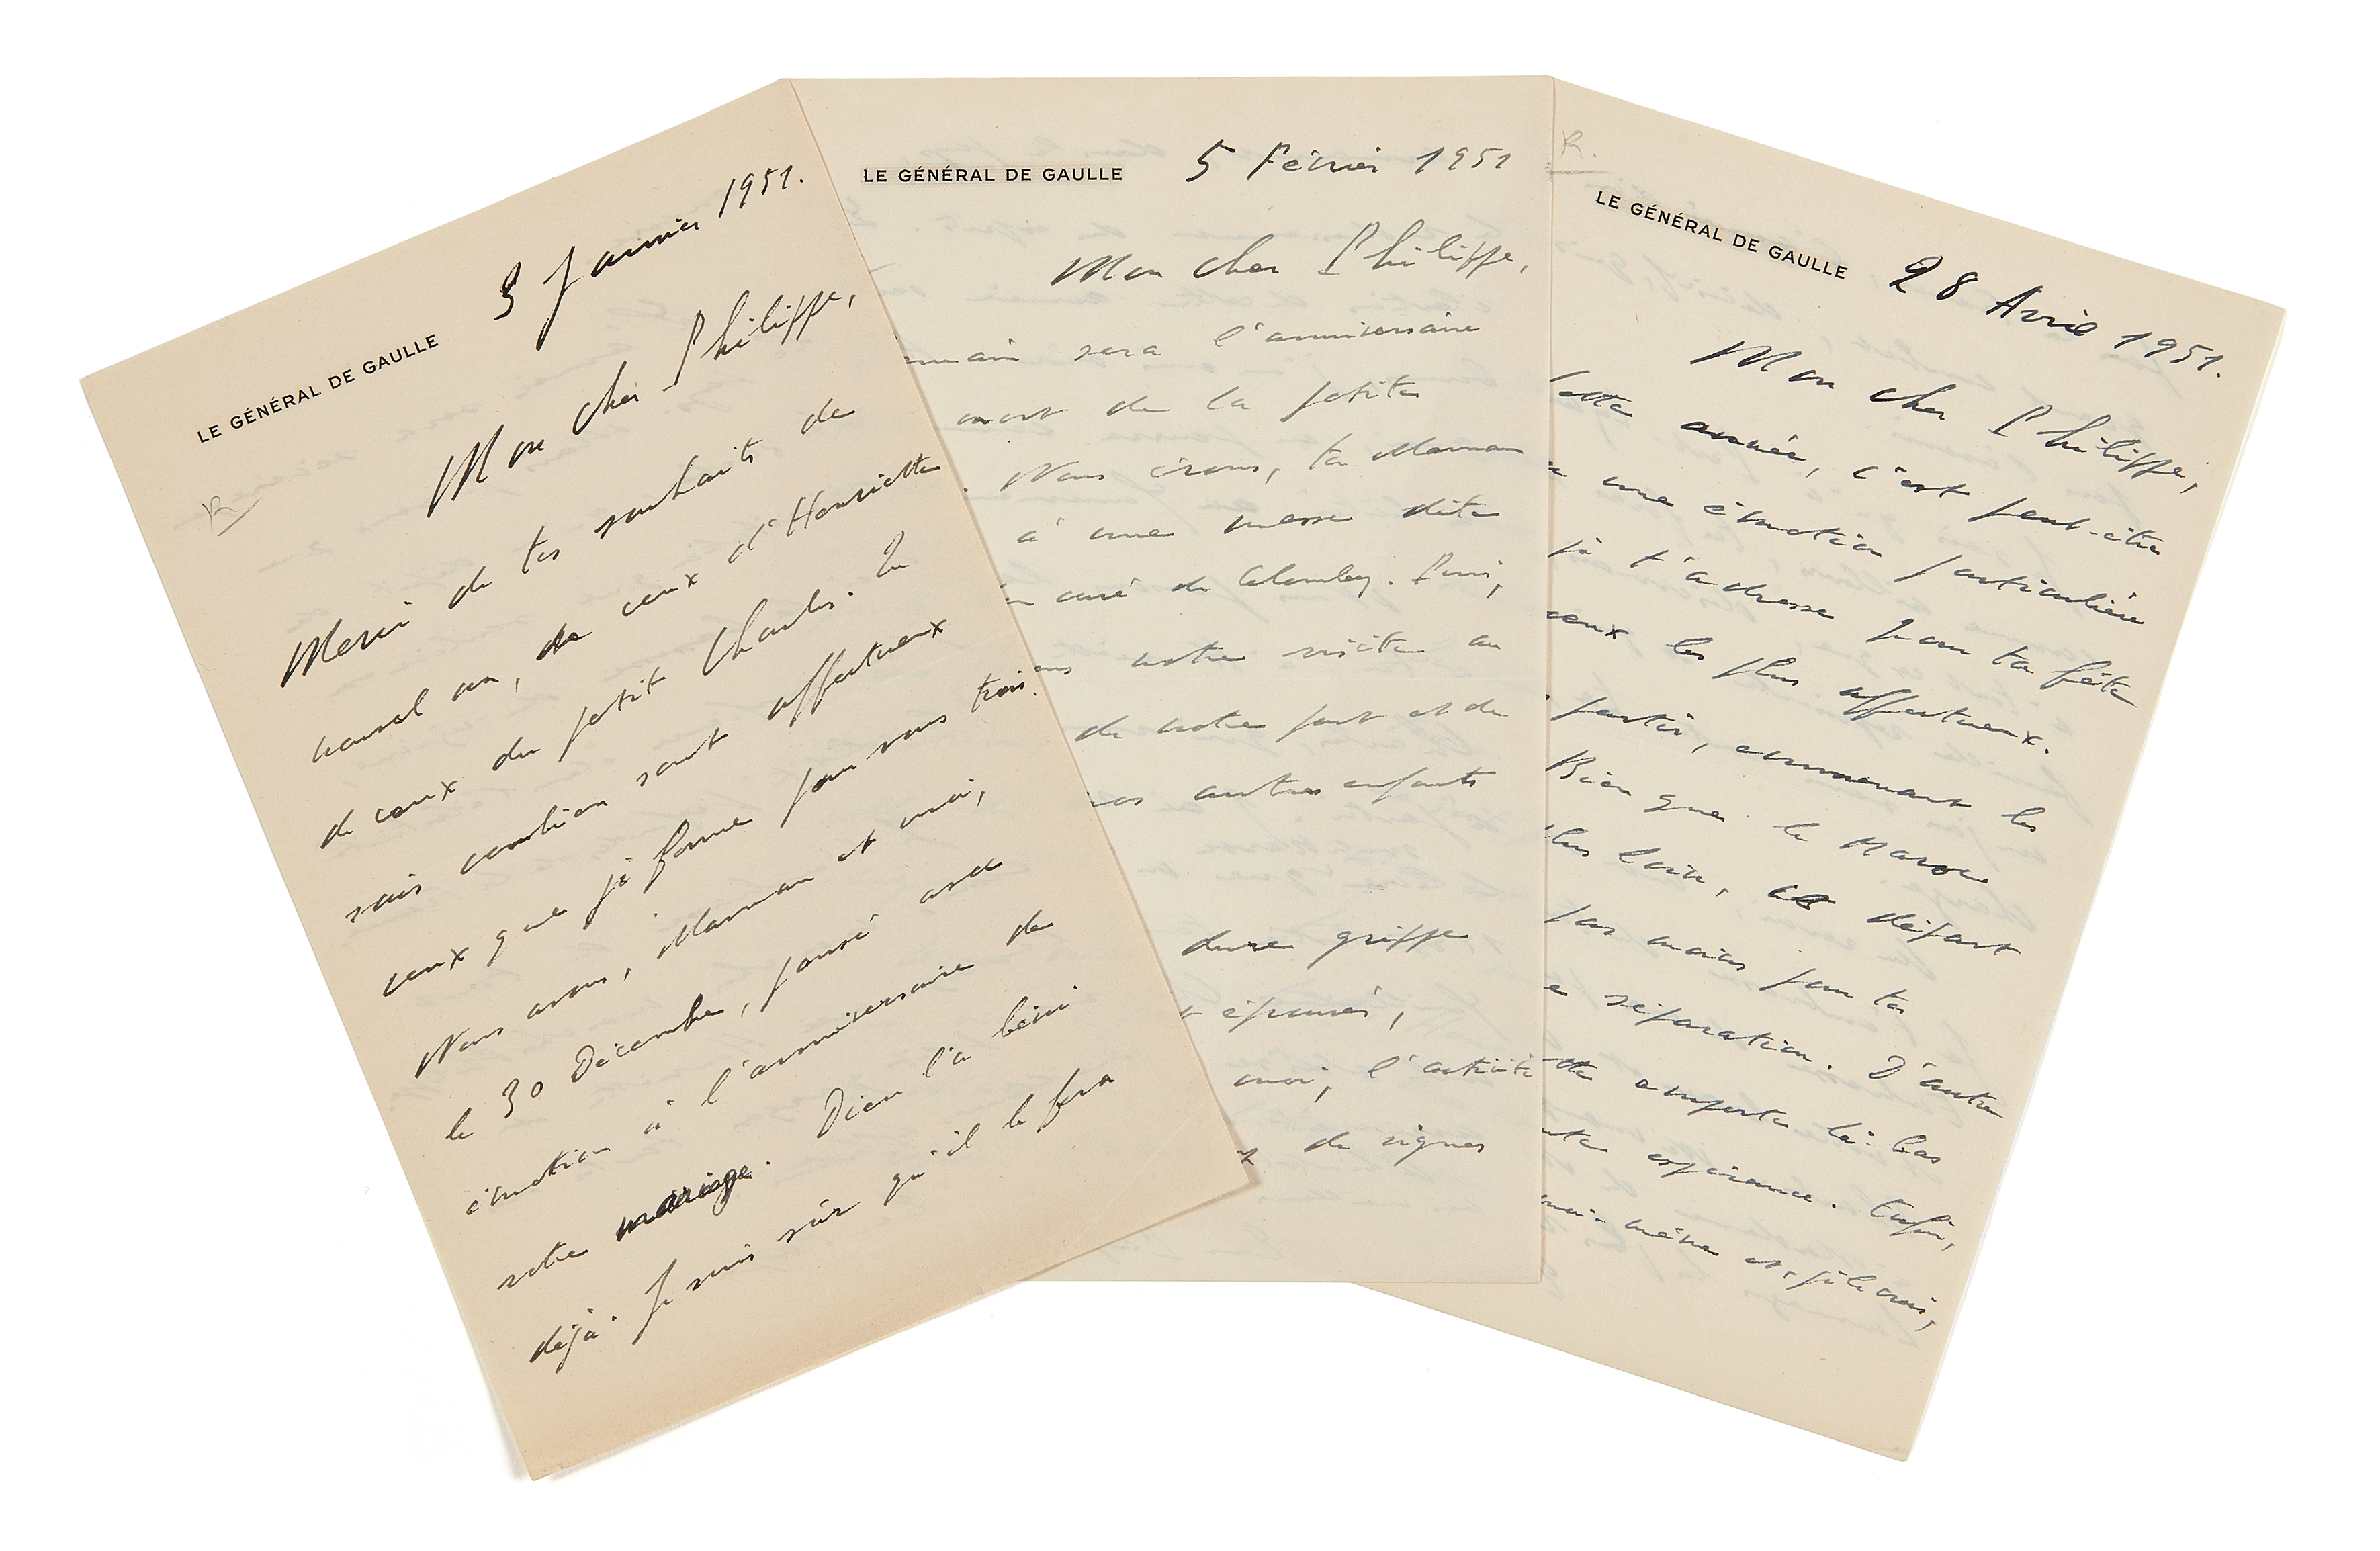 LE GÉNÉRAL DE GAULLE
5 Janvier 1951.
R
Mon cher Philippe,
Merci de tes souhaits de
nouvel an, de ceux d'Henriette
de ceux du petit Charles. Tu
sais combien sont affectueux
ceux que je forme pour vous trois.
Nous avons, Maman et moi,
le 30 Décembre, pensé avec
émotion à l'anniversaire de
votre mariage. Dieu l'a béni
déjà. Je suis sûr qu'il le fera
LE GÉNÉRAL DE GAULLE
5 Février 1951
Mon cher Philippe,
sera l'anniversaire
mort de la petite
Nous irons, ta Maman
à une messe dite
curé de Colombey. Puis,
notre visite au
de notre part et de
nos autres enfants
dure griffe
éprouvés,
moi, l'activité
de signes
R.
LE GÉNÉRAL DE GAULLE
28 Avril 1951.
Mon cher Philippe,
Cette année, c'est peut-être
une émotion particulière
je t'adresse pour ta fête
voeux les plus affectueux.
partir, emmenant les
Bien que le Maroc
plus loin, ce départ
pas moins pour ta
séparation. D'autre
emporte là-bas
espérance. Enfin,
moi-même et, je le crois,